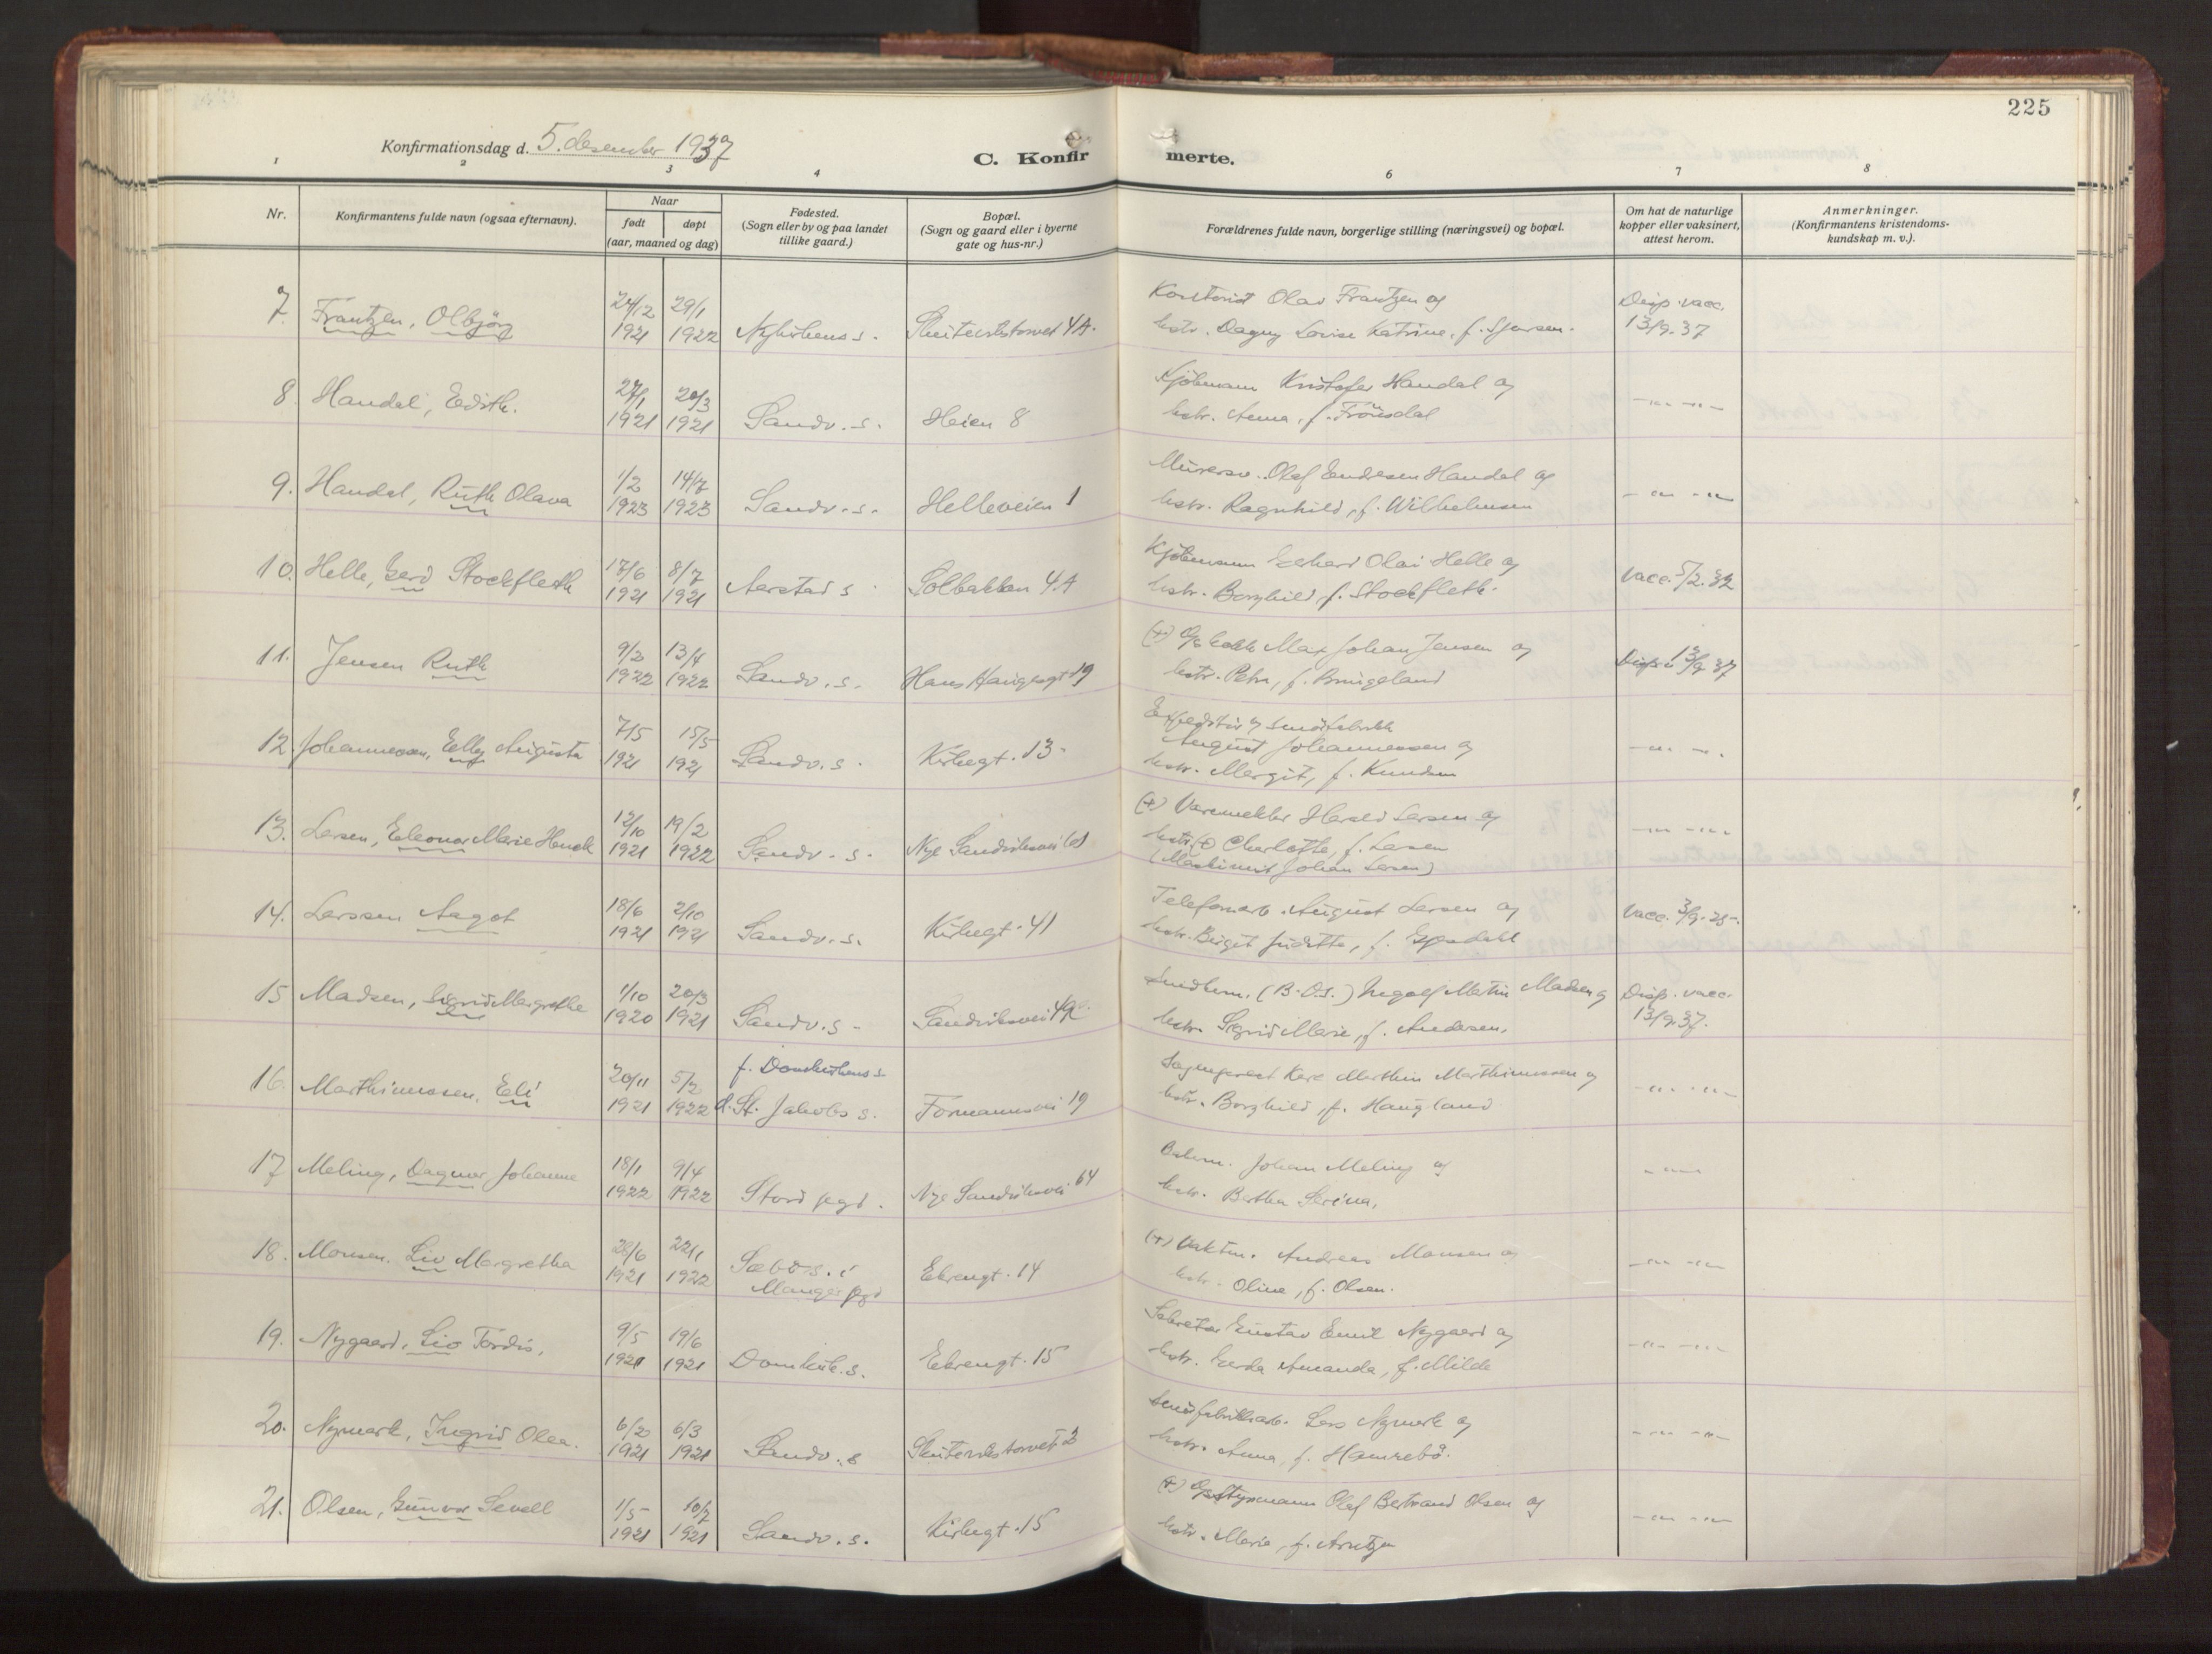 225
Konfirmationsdag d. 5. desember 1937
C. Konfirmerte.
1 2 3 4 6 7 8
Nr.
Konfirmantens fulde navn (ogsaa efternavn).
Naar
født døpt
(aar, maaned og dag)
Fødested.
(Sogn eller by og paa landet
tillike gaard.)
Bopæl.
(Sogn og gaard eller i byerne
gate og hus-nr.)
Forældrenes fulde navn, borgerlige stilling (næringsvei) og bopæl.
Om hat de naturlige
kopper eller vaksinert,
attest herom.
Anmerkninger.
(Konfirmantens kristendoms-
kundskap m. v.).
7. Frantzen, Olbjörg 24/12 1921 29/1 1922 Nykirkens s. Skutevikstorvet 4A.
Kontorist Olav Frantzen og
hstr. Dagny Lovise Katrine, f.
Disp. vacc.
13/9.37
8. Handal, Edith. 27/1 1921 20/3 1921 Sandv. s. Heien 8
Kjöbmann Kristofer Handal og
hstr. Anna, f. Frönsdal
-"- -"-
9. Handal, Ruth Olava 1/2 1923 14/7 1923 Sandv. s. Helleveien 1
Murersv. Olaf Endresen Handal og
hstr. Ragnhild, f. Wilhelmsen
-"- -"-
10. Helle, Gerd Stockfleth 17/6 1921 8/7 1921 Aarstad s. Solbakken 4A
Kjöbmann Gerhard Olai Helle og
hstr. Borghild, f. Stockfleth.
Vacc. 5/2.32
11. Jensen Ruth 9/2 1922 13/4 1922 Sandv. s. Hans Haugesgt 19
(+) Max Johan Jensen og
hstr. Petra, f. Bringeland
Disp. 13/9 37
12. Johannessen, Elly Augusta 7/5 1921 15/5 1921 Sandv. s. Kirkegt. 13.
Expeditör
August Johannessen og
hstr. Margit, f. Knudsen
-"- -"-
13. Larsen, Eleonor Marie Hauch 12/10 1921 19/2 1922 Sandv. s. Nye Sandviksvei
(+) Varemekler Harald Larsen og
hstr. (+) Charlotte, f. Larsen
(Maskinist Johan Larsen)
-"- -"-
14. Larssen Aagot 18/6 1921 2/10 1921 Sandv. s. Kirkegt. 41
Telefonarb. August Larsen og
hstr. Birgit Juditta, f. Espedahl
Vacc. 3/9.25.
15 Madsen, Sigrid Margrethe 1/10 1920 20/3 1921 Sandv. s. Sandviksvei
(B.O.S.) Ingolf Martin Madsen og
hstr. Sigrid Marie, f. Andersen.
Disp. vacc.
13/9.37.
16. Marthinussen, Eli 20/11 1921 5/2 1922 f. Domkirkens s. d. St. Jakobs s. Formannsvei 19
Sogneprest Kåre Marthin Marthinussen og
hstr. Borghild, f. Haugland
-"- -"-
17 Meling, Dagmar Johanne 18/1 1922 9/4 1922 Stord pgd. Nye Sandviksvei 64
Johan Meling og
hstr. Bertha Serina,
-"-
18. Monsen. Liv Margretha 28/6 1921 22/1 1922 Sæbö s. i Manger pgd Ekrengt. 14
(+) Vaktm. Andreas Monsen og
hstr. Oline, f. Olsen.
-"- -"-
19. Nygaard, Liv Tordis, 9/5 1921 19/6 1921 Domkirk. s. Ekrengt. 15
Sekretær Gustav Emil Nygaard og
hstr. Gerda Amanda, f. Milde
-"- -"-
20. Nymark, Ingrid Olea. 6/2 1921 6/3 1921 Sandv. s Skutevikstorvet 2
Lars Nymark og
hstr. Anna, f. Hamrebö.
-"- -"-
21. Olsen, Gunvor Sevell 1/5 1921 10/7 1921 Sandv. s. Kirkegt. 15
(+) Styrmann Olaf Bertrand Olsen og
hstr. Marie, f. Arntzen
-"- -"-